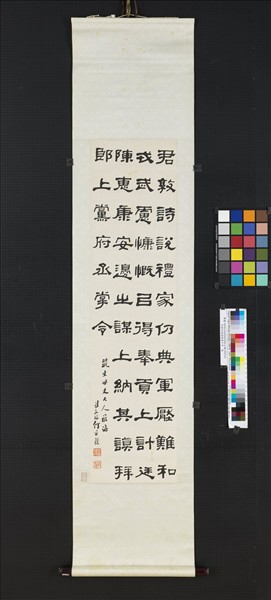 君敦詩說禮家仍典軍壓難和
戎武慮慷慨㠯得奉貢上計廷
陳惠康安邊之謀上納其謨拜
郎上黨府丞掌令
大人